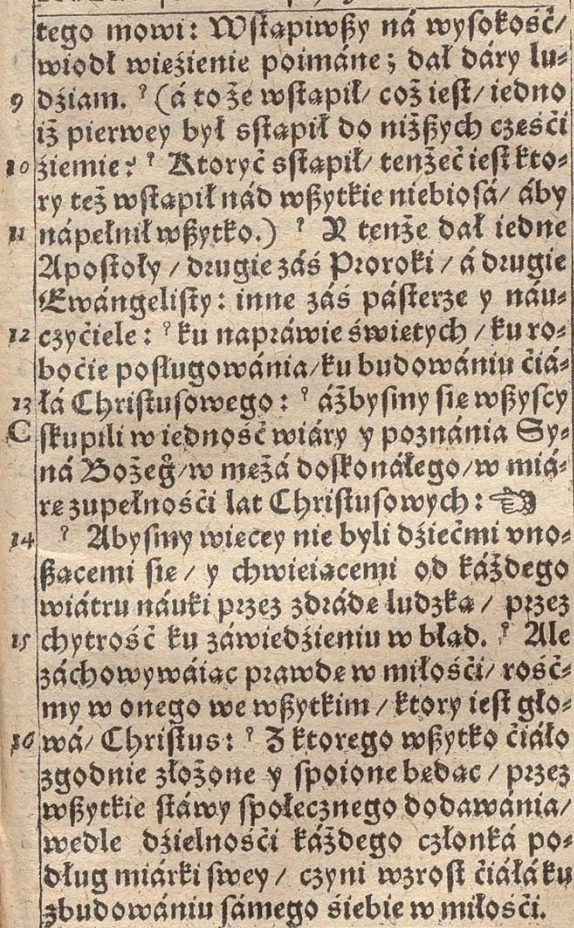 tego mowi: Wſtąpiwßy ná wyſokość/
wiodł więźienie poimáne; dał dáry lu⸗
9 dźiam. ʾ (á to że wſtąpił/ coż ieſt/ iedno
iż pierwey był sſtąpił do niżßych części
10 źiemie? ʾ Ktoryć sſtąpił/ tenżeć ieſt kto⸗
ry też wſtąpił nád wßytkie niebioſá/ áby
11 nápełnił wßytko.) ʾ Y tenże dał iedne
Apoſtoły / drugie záś Proroki / á drugie
Ewángeliſty: inne záś páſterze y náu⸗
12 czyćiele: ʾ ku napráwie świętych / ku ro⸗
boćie poſługowánia/ ku budowániu ćiá⸗
13 łá Chriſtuſowego: ʾ áżbyſmy się wßyſcy
C ſkupili w iedność wiáry y poznánia Sy⸗
ná Bożeg̊/ w mężá doſkonáłego/ w miá⸗
rę zupełnośći lat Chriſtuſowych: ☜
14 ʾ Abyſmy więcey nie byli dźiećmi vno⸗
ßącemi się / y chwieiącemi od káżdego
wiátru náuki przez zdrádę ludzką / przez
15 chytrość ku záwiedźieniu w błąd. ʾ Ale
záchowywáiąc prawdę w miłośći/ rość⸗
my w onego we wßytkim / ktory ieſt gło⸗
16 wá/ Chriſtus: ʾ Z ktorego wßytko ćiáło
zgodnie złożone y ſpoione będąc / przez
wßytkie ſtáwy ſpołecznego dodawánia/
wedle dźielnośći káżdego członká po⸗
dług miárki ſwey / czyni wzroſt ćiáłá ku
zbudowániu ſámego śiebie w miłośći.